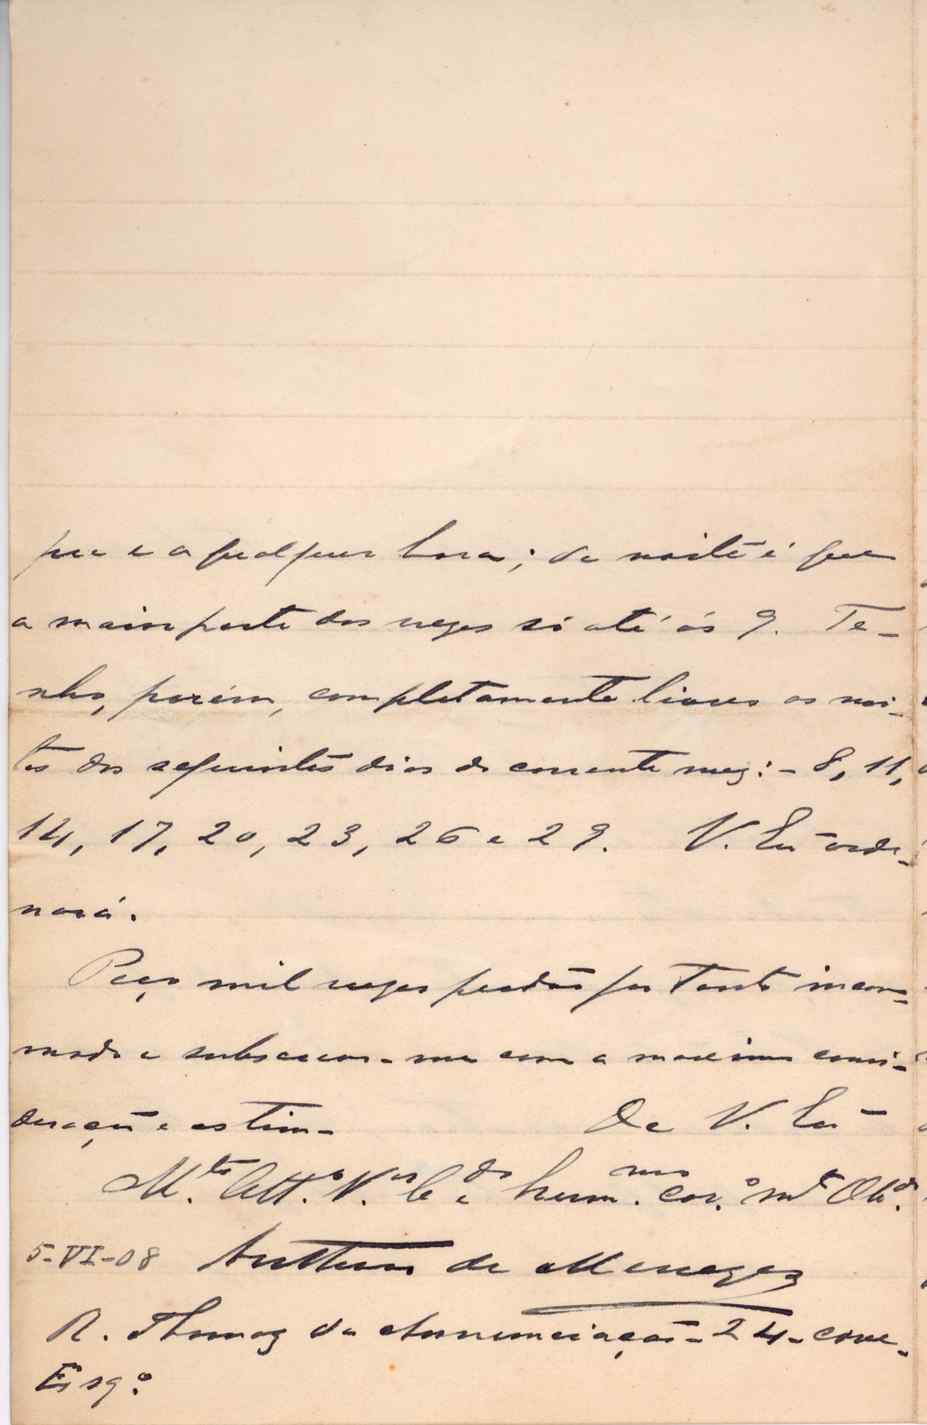 que e a qualquer hora; de noite é que
a maior parte das vezes só até ás 9. Te-
nho, porém, completamente livres as noi-
tes dos seguintes dias do corrente mez: - 8, 11,
14, 17, 20, 23, 26 e 29. V. Exª orde-
nará.
Peço mil vezes perdão por tanto incom-
modo e subscrevo-me com a maxima consi-
deração e estima
De V. Exª
M.to Att.º V.or C.do e hum.mo cor.º m.to Ob.do
5-VI-08 Anthero de Menezes
R. Thomaz da Annunciação - 24 - cave -
Esq.º